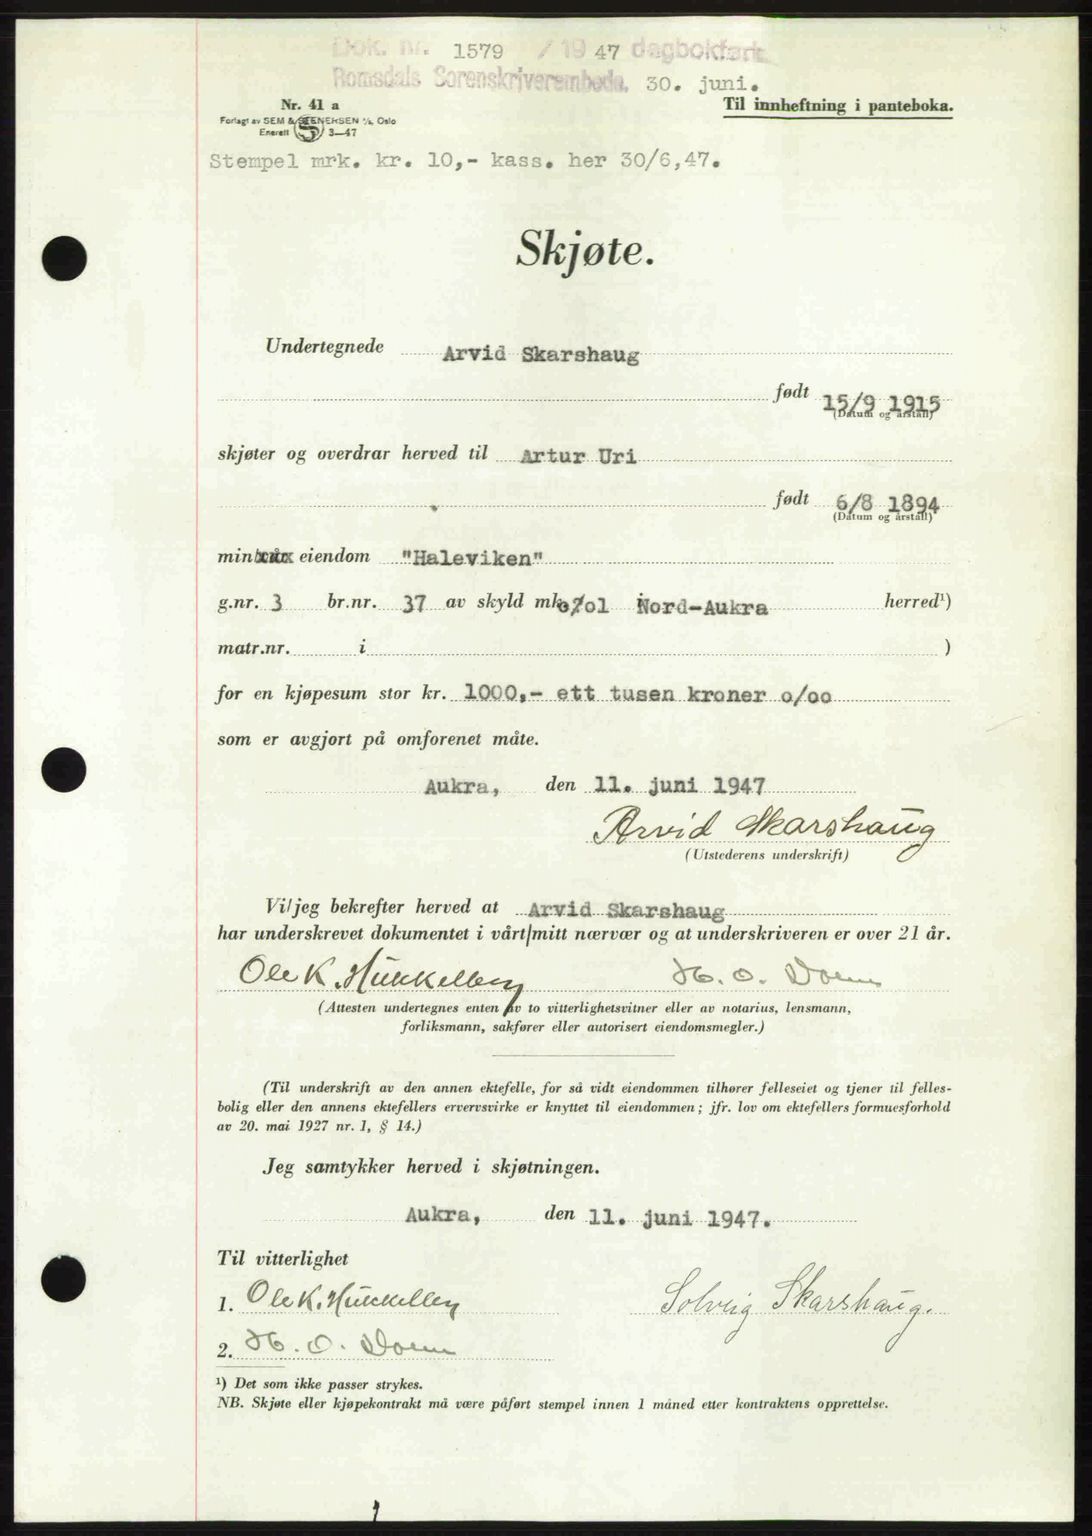 Dok. nr. 1579 / 1947 dagbokført
Romsdals Sorenskriverembede, 30. juni.
Nr. 41 a
Til innheftning i panteboka.
Forlagt av SEM & STENERSEN A/S, Oslo
Enerett S 3—47
Stempel mrk. kr. 10,- kass. her 30/6,47.
Skjøte.
Undertegnede Arvid Skarshaug
født 15/9 1915
(Datum og årstall)
skjøter og overdrar herved til Artur Uri
født 6/8 1894
(Datum og årstall)
min eiendom "Haleviken"
g.nr. 3 br.nr. 37 av skyld mk. o/ol i Nord-Aukra herred¹)
matr.nr. i )
for en kjøpesum stor kr. 1000,- ett tusen kroner o/oo
som er avgjort på omforenet måte.
Aukra, den 11. juni 1947
Arvid Skarshaug
(Utstederens underskrift)
Vi/jeg bekrefter herved at Arvid Skarshaug
har underskrevet dokumentet i vårt/mitt nærvær og at underskriveren er over 21 år.
Ole K. H. O.
(Attesten undertegnes enten av to vitterlighetsvitner eller av notarius, lensmann,
forliksmann, sakfører eller autorisert eiendomsmegler.)
(Til underskrift av den annen ektefelle, for så vidt eiendommen tilhører felleseiet og tjener til felles-
bolig eller den annens ektefellers ervervsvirke er knyttet til eiendommen; jfr. lov om ektefellers formuesforhold
av 20. mai 1927 nr. 1, § 14.)
Jeg samtykker herved i skjøtningen.
Aukra, den 11. juni 1947.
Til vitterlighet
1. Ole K. Solveig Skarshaug.
2. H. O.
¹) Det som ikke passer strykes.
NB. Skjøte eller kjøpekontrakt må være påført stempel innen 1 måned etter kontraktens opprettelse.